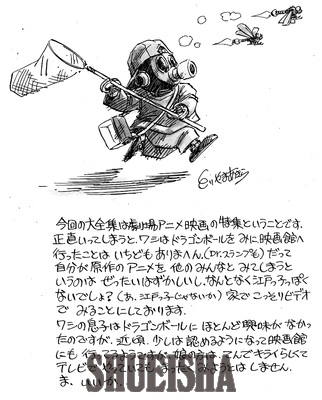 とりやまあきら
今回の大全集は劇場アニメ映画の特集ということです。
正直いってしまうと、ワシはドラゴンボールをみに映画館へ
行ったことは いちども ありまへん。(Dr.スランプも) だって
自分が原作のアニメを、他のみんなと みてしまうと
いうのは ぜったい はずかしいし、なんとなく江戸っ子っぽく
ないでしょ？(あ、江戸っ子じゃないか) 家で こっそりビデオで
みることにしております。
ワシの息子はドラゴンボールに ほとんど 興味が なかっ
たのですが、近頃、少しは認めるようになって映画館
にも 行ってるようですが、娘のほうは、てんで キライらしくて
テレビで やっていても まったく みようとは しません。
ま、いいか。
SHUEISHA